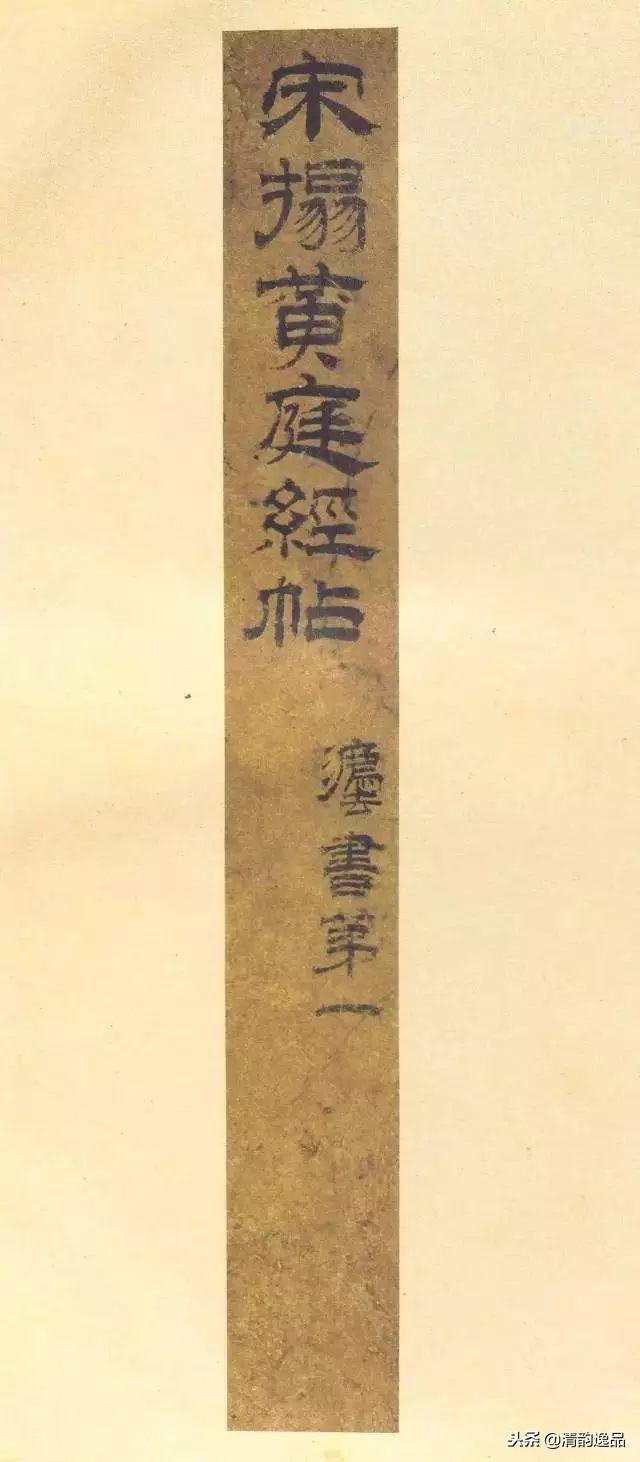 宋搨黄庭經帖
灋書第一
头条 @清韵逸品